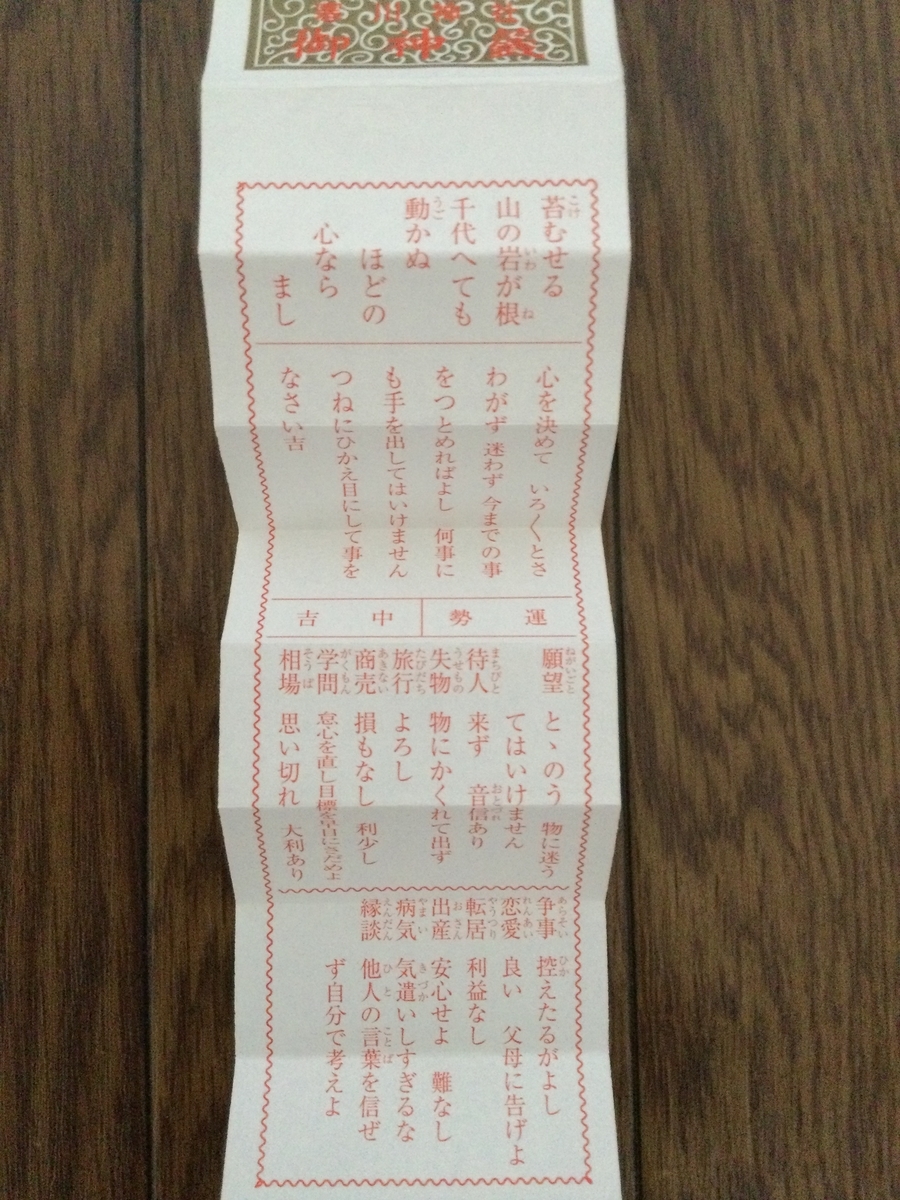 川神社
御神籤
苔むせる
山の岩が根
千代へても
動かぬ
ほどの
心なら
まし
心を決めて いろ〳〵とさ
わがず 迷わず 今までの事
をつとめればよし 何事に
も手を出してはいけません
つねにひかえ目にして事を
なさい吉
運勢 中吉
願望 とゝのう 物に迷う
てはいけません
待人 来ず 音信あり
失物 物にかくれて出ず
旅行 よろし
商売 損もなし 利少し
学問 怠心を直し目標を早目にさだめよ
相場 思い切れ 大利あり
争事 控えたるがよし
恋愛 良い 父母に告げよ
転居 利益なし
出産 安心せよ 難なし
病気 気遣いしすぎるな
縁談 他人の言葉を信ぜ
ず自分で考えよ